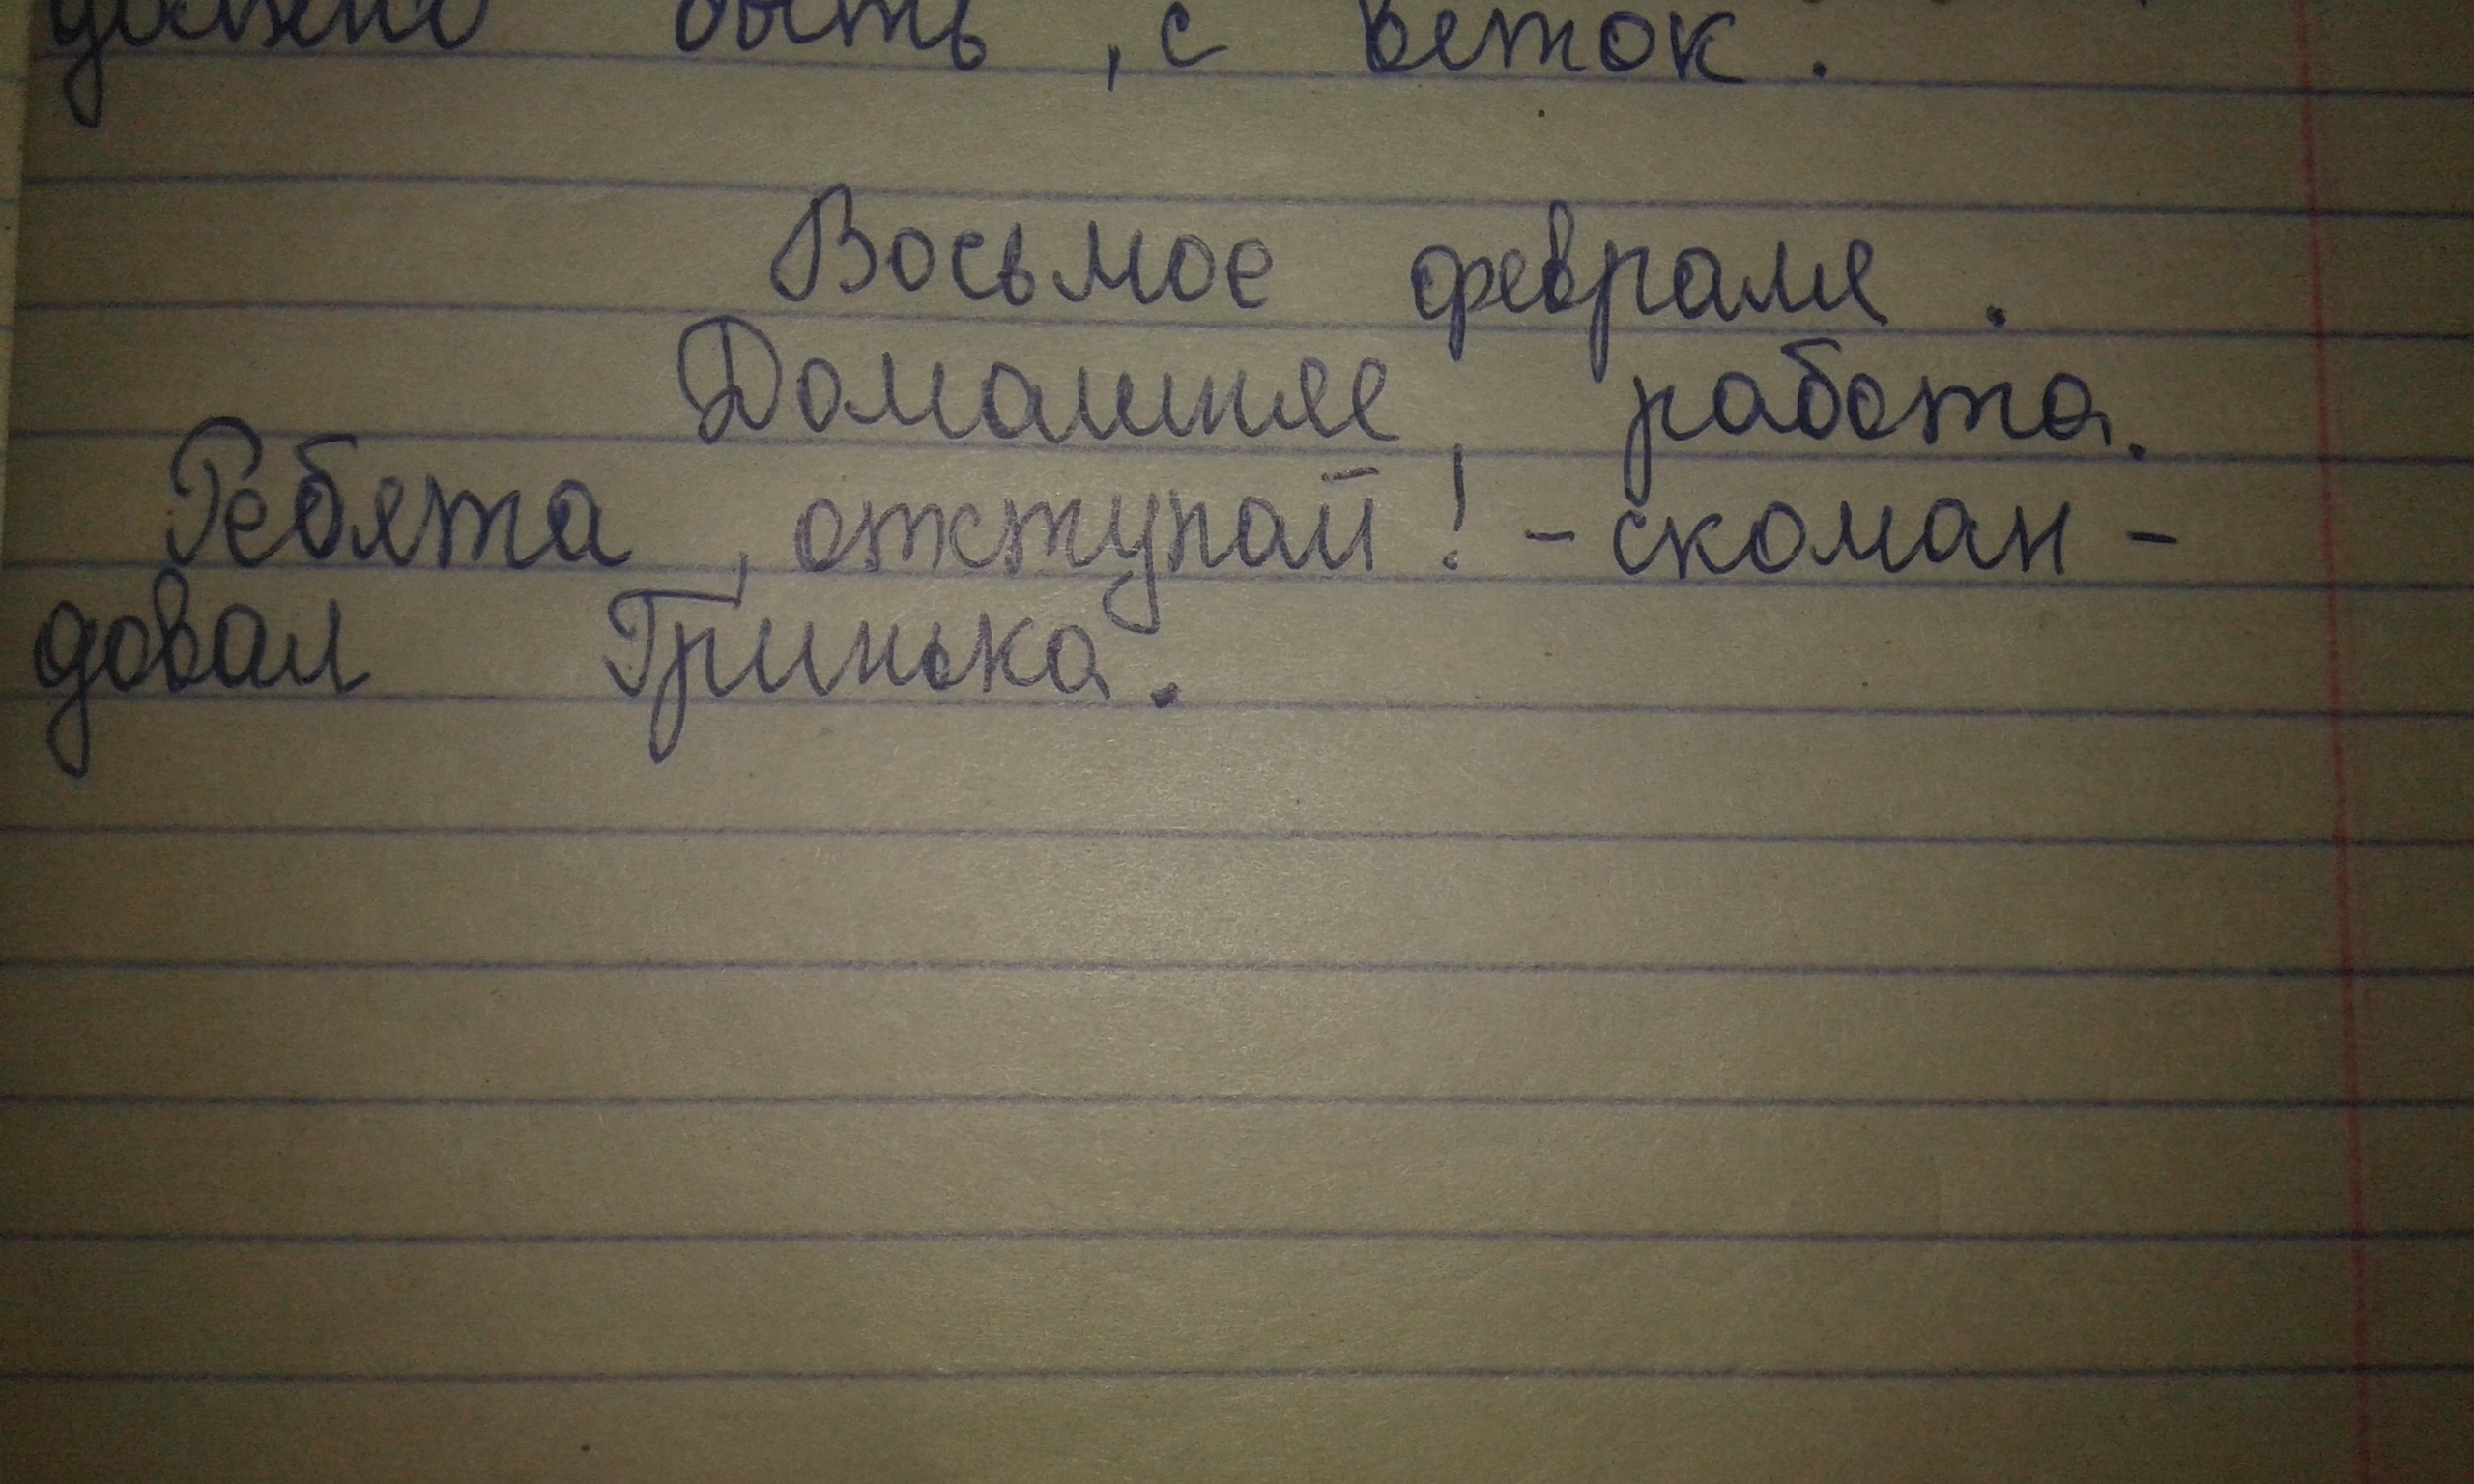 должно быть, с веток.
Восьмое февраля.
Домашняя работа.
Ребята, отступай! - скоман-
довал Гринька.